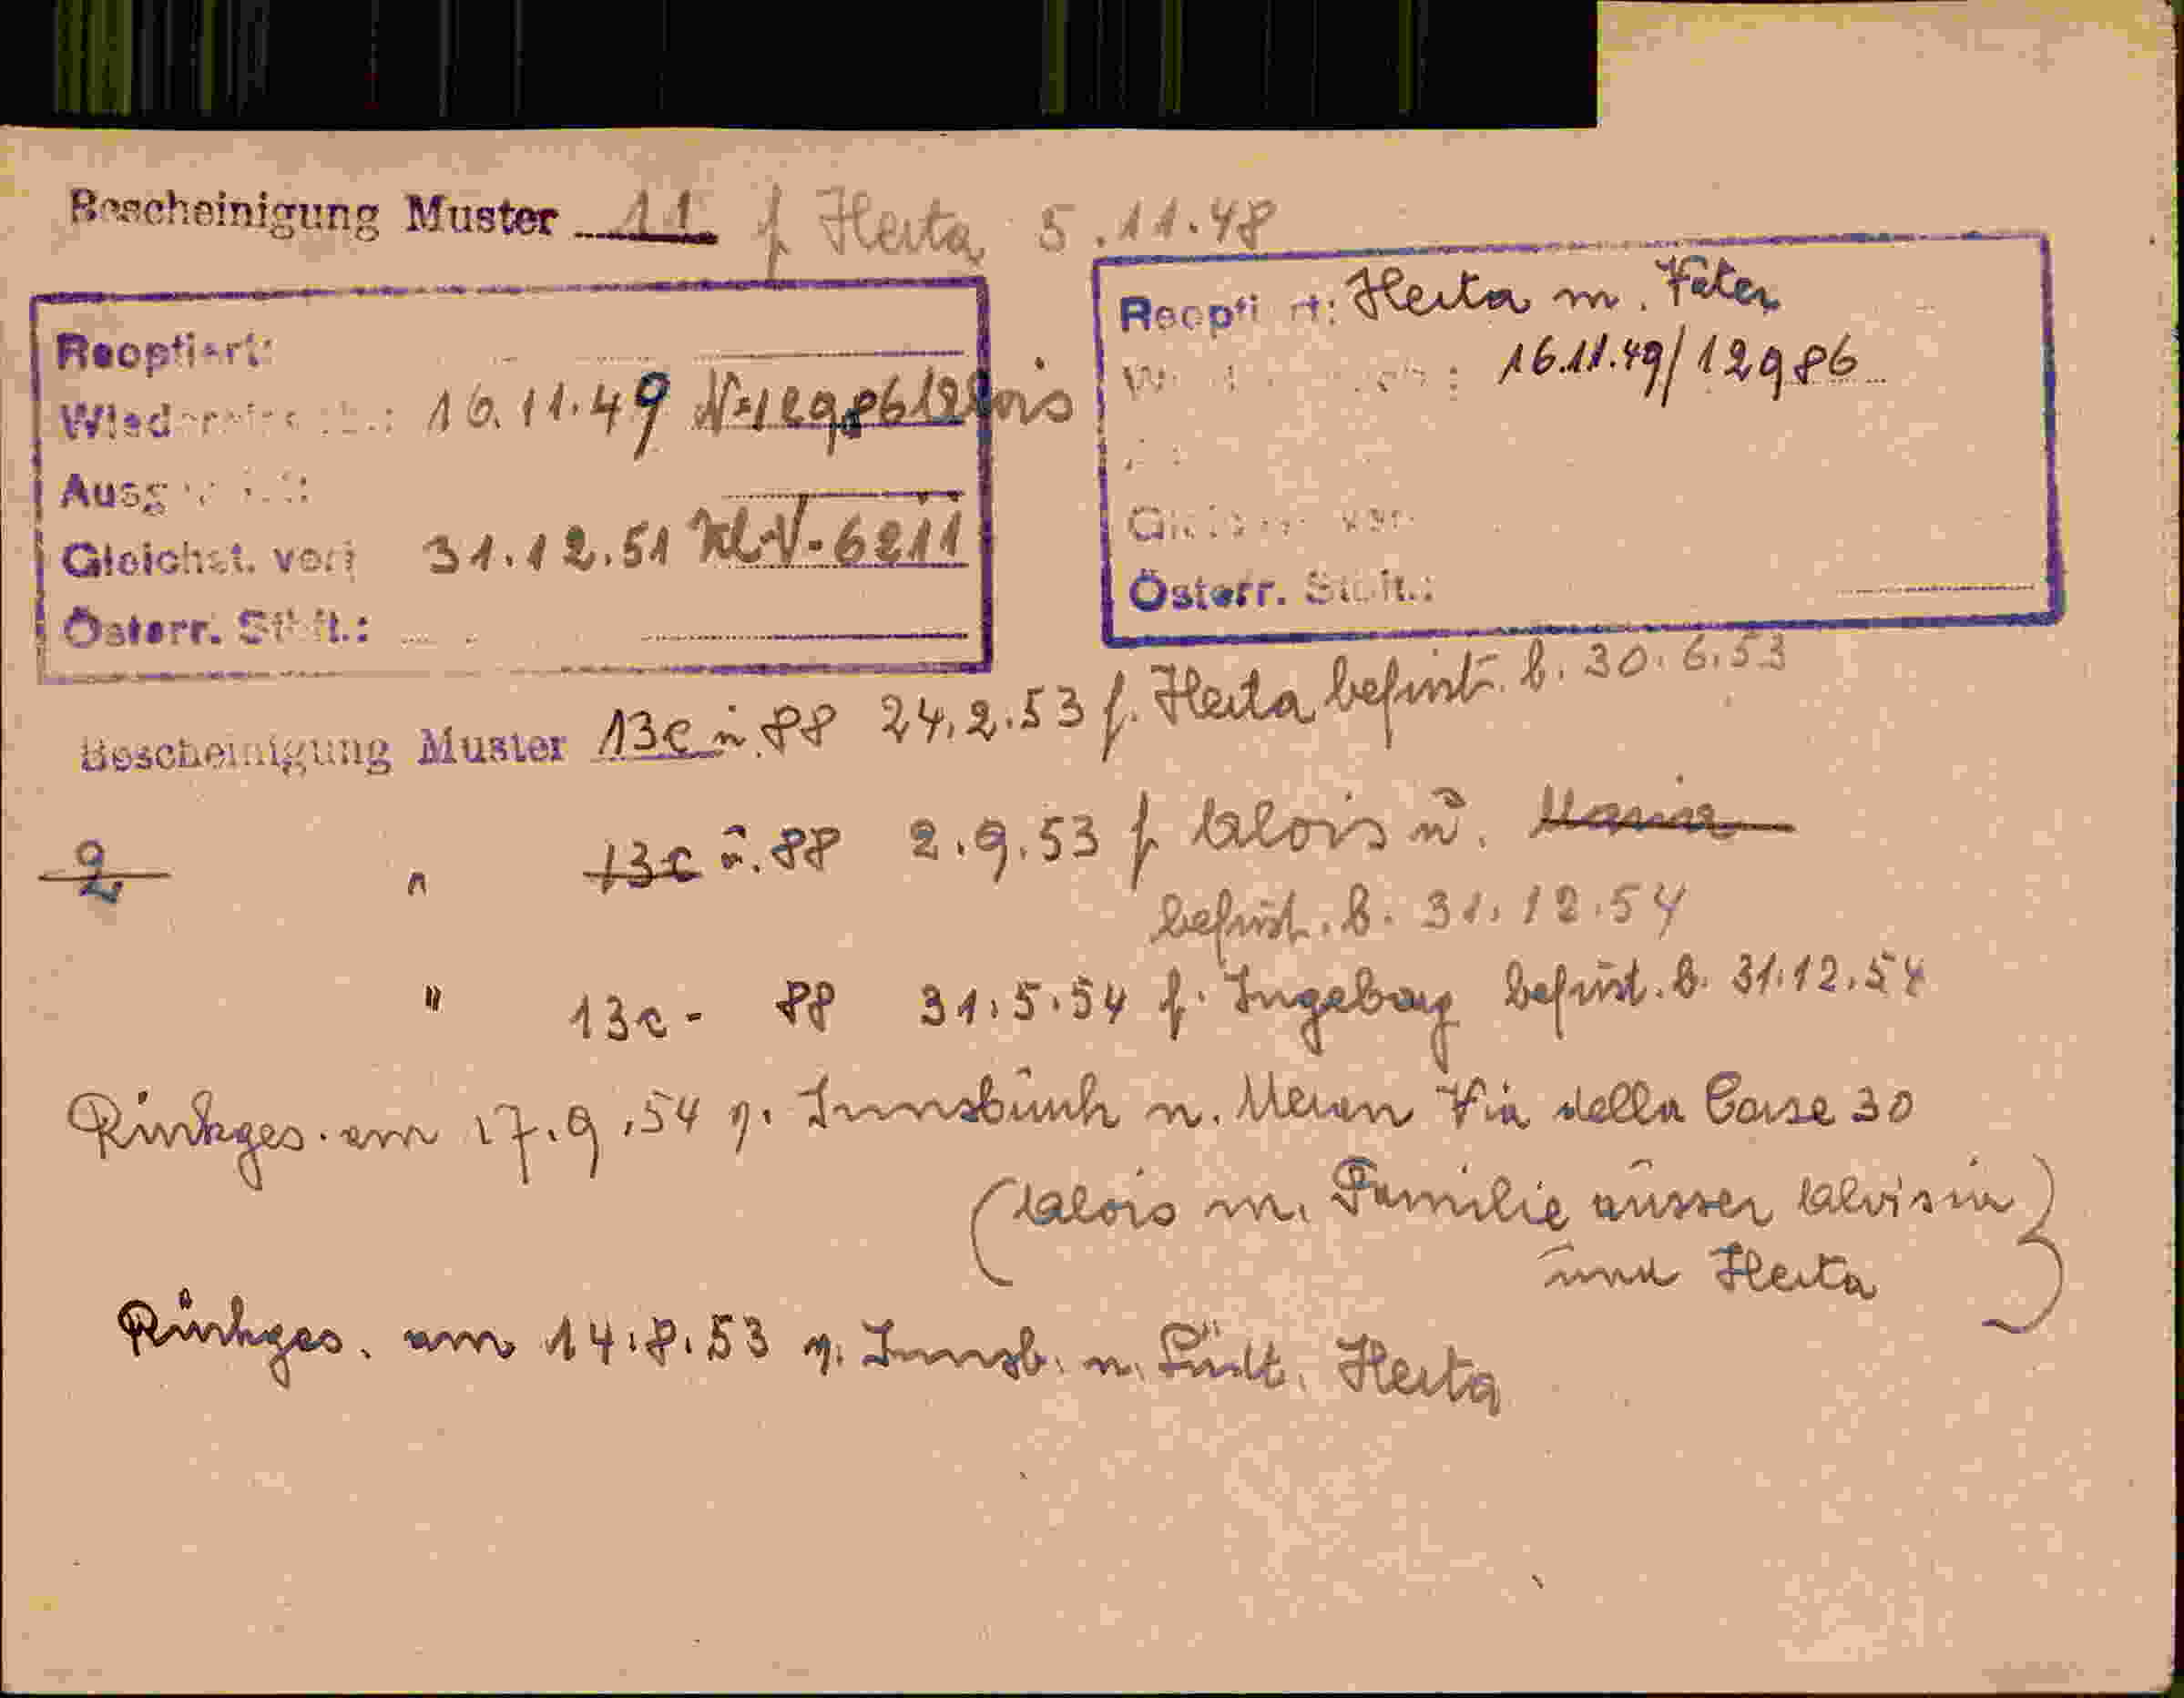 Bescheinigung Muster 11 f Herta 5.11.48
Reoptiert:
16.11.49 N-12986 Alois
Gleichst. verl 31.12.51 Kl.V-6211
Österr. Stbft.:
Reoptiert: Herta m. Vater
16.11.49/12986
Österr. Stbft.:
Bescheinigung Muster 13c ū. 88 24.2.53 f. Herta befrist. b. 30.6.53
2 " 13c ū. 88 2.9.53 f Alois ū. Maria
befrist. b. 31.12.54
" 13c - 88 31.5.54 f. Ingeborg befrist. b. 31.12.54
Rückges. am 17.9.54 v. Innsbruck n. Meran Via della Corse 30
(Alois m. Familie ausser Aloisia
und Herta)
Rückges. am 14.8.53 v. Innsb. n. Südt. Herta